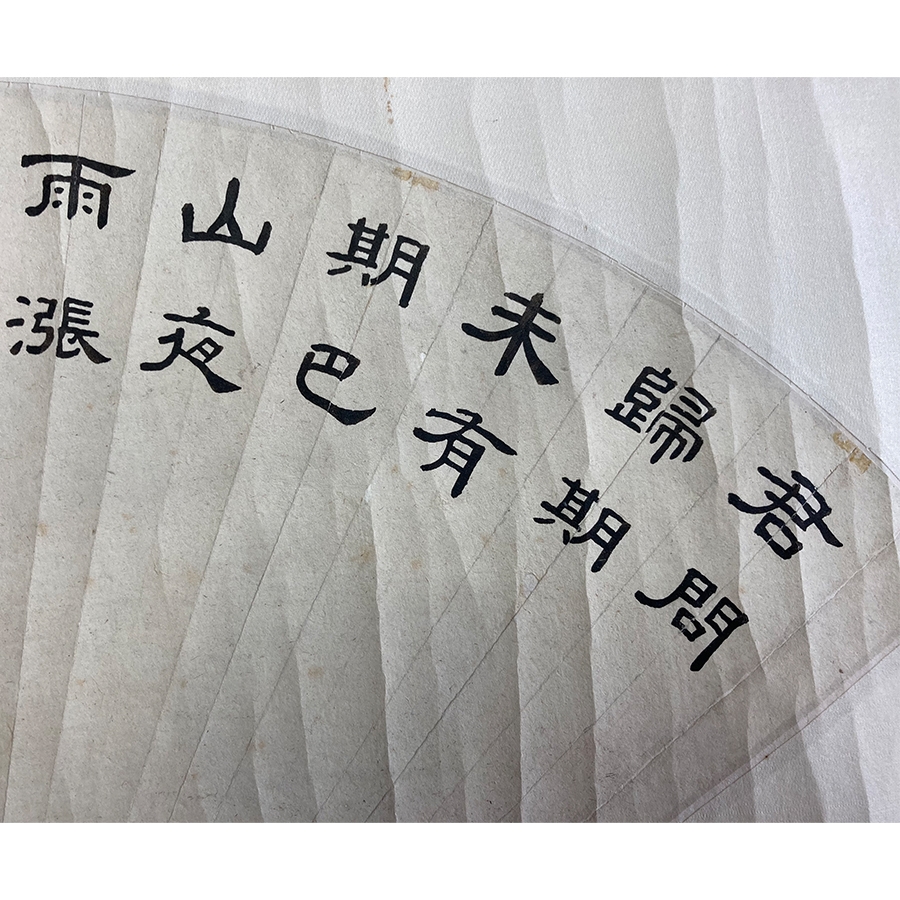 君問
歸期
未有
期巴
山夜
雨漲